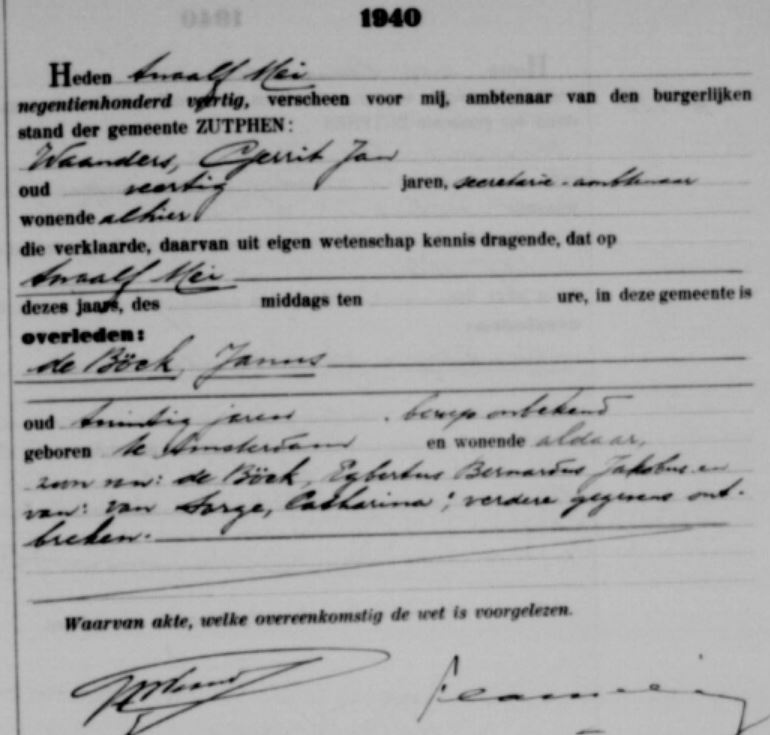 1940
Heden twaalf Mei
negentienhonderd veertig, verscheen voor mij, ambtenaar van den burgerlijken
stand der gemeente ZUTPHEN:
Waanders, Gerrit Jan
oud veertig jaren, secretarie-ambtenaar
wonende alhier
die verklaarde, daarvan uit eigen wetenschap kennis dragende, dat op
twaalf Mei
dezes jaars, des middags ten ure, in deze gemeente is
overleden:
de Böck, Janus
oud twintig jaren, beroep onbekend
geboren te Amsterdam en wonende aldaar,
zoon van: de Böck, Egbertus Bernardus Jakobus en
van: van Sorge, Catharina; verdere gegevens ont-
breken.
Waarvan akte, welke overeenkomstig de wet is voorgelezen.